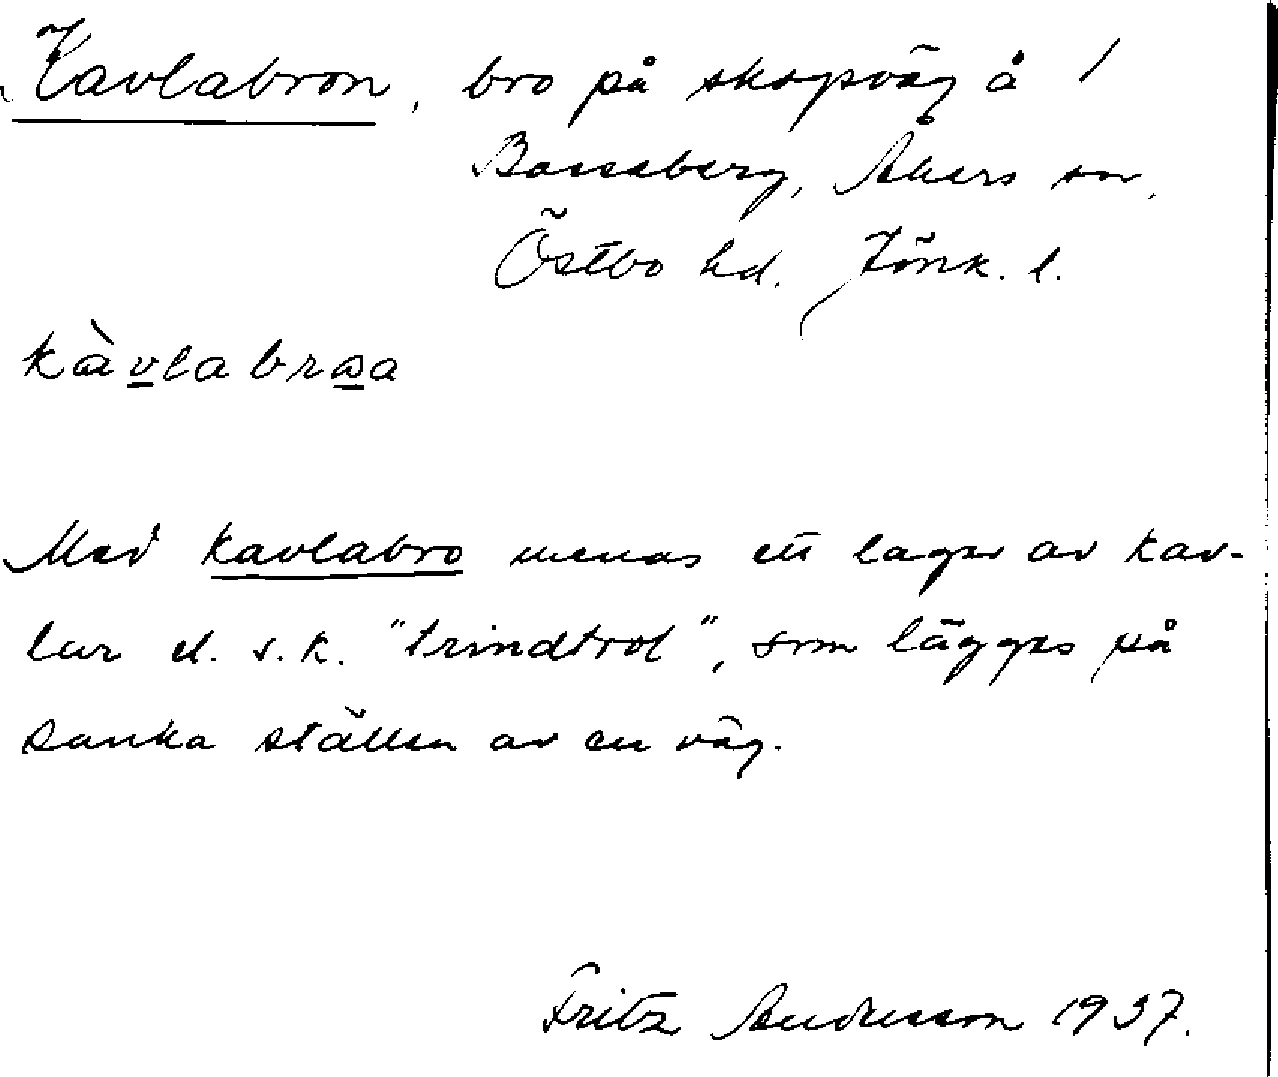 Kavlabron, bro på skogsväg å /
Bosseberg, Åkers sn,
Östbo hd. Jönk. l.
kàvlabroa
Med kavlabro menas ett lager av kav-
lar el. s.k. "trindtrod", som lägges på
sanka ställen av en väg.
Fritz Andersson 1937.